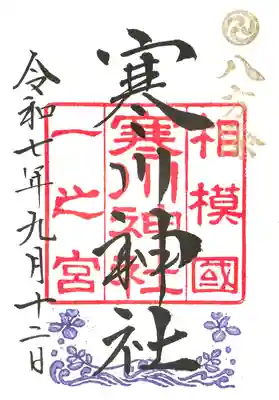 八方除
寒川神社
相模國
寒川神社
一之宮
令和七年九月十二日